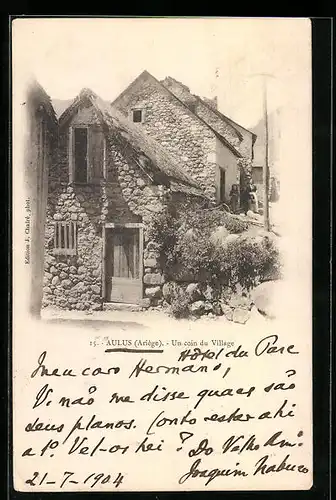 Edition J. Claché, phot.
15. - AULUS (Ariège). - Un coin du Village
Hôtel du Parc
Meu caro Hermano,
V. não me disse quaes são
seus planos. Conto estar ahi
a 1º. Vel-os hei? Do Velho Amº.
21-7-1904 Joaquim Nabuco